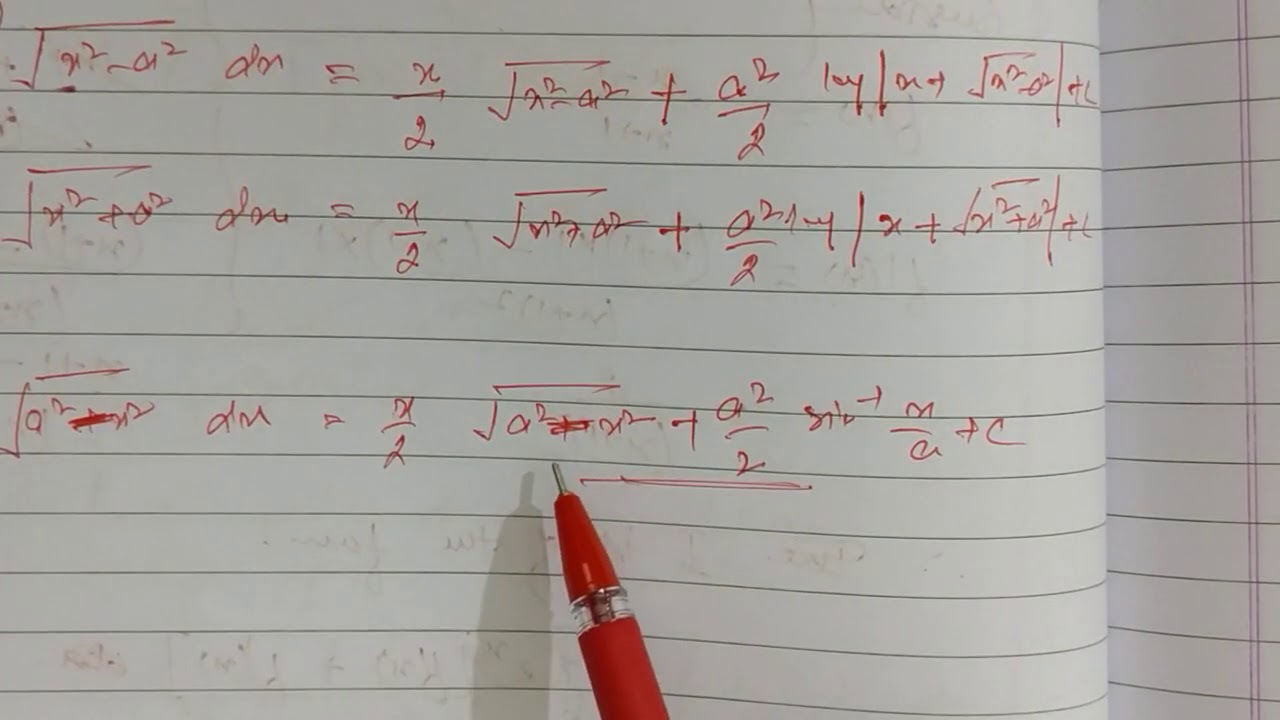 √x²-a² dx = x/2 √x²-a² + a²/2 log|x+ √x²-a²|+c
√x²+a² dx = x/2 √x²+a² + a²/2 log|x+√x²+a²|+c
√a²-x² dx = x/2 √a²-x² + a²/2 sin⁻¹ x/a +c